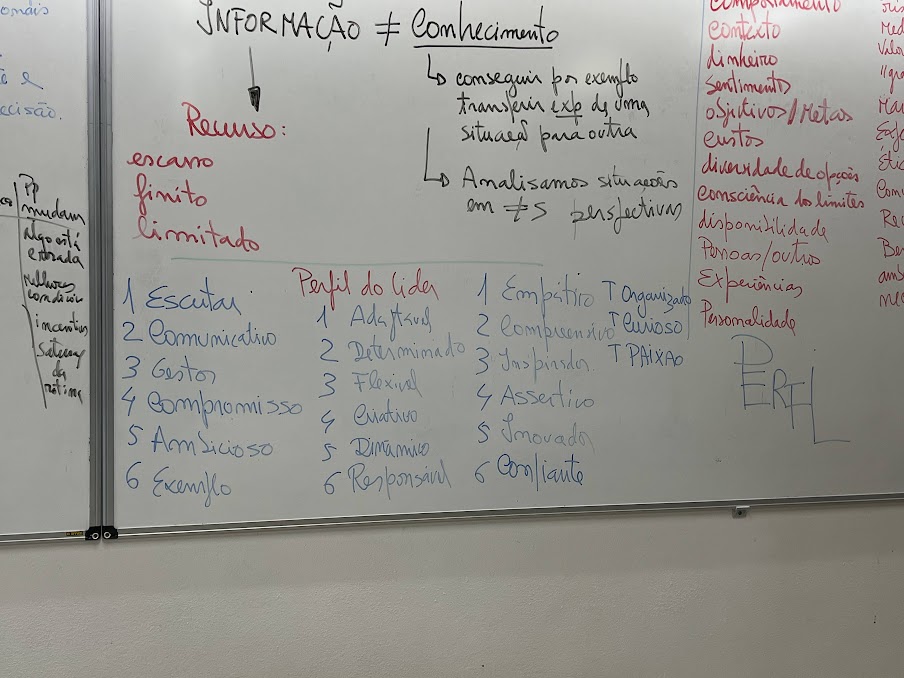 INFORMAÇÃO ≠ Conhecimento
↳ conseguir por exemplo
transferir exp de uma
situação para outra
↳ Analisamos situações
em ≠s perspectivas
Recurso:
escasso
finito
limitado
Perfil do líder
1 Escutar
2 Comunicativo
3 Gestor
4 Compromisso
5 Ambicioso
6 Exemplo
1 Adaptável
2 Determinado
3 Flexível
4 Criativo
5 Dinâmico
6 Responsável
1 Empático
2 Compreensivo
3 Inspirador
4 Assertivo
5 Inovador
6 Confiante
↑ Organizado
↑ Curioso
↑ PAIXÃO
comportamento
contexto
dinheiro
sentimentos
objetivos/Metas
custos
diversidade de opções
consciência dos limites
disponibilidade
Pessoas/outro
Experiências
Personalidade
mudam
algo está
errada
melhores
condições
incentivos
da
rotina